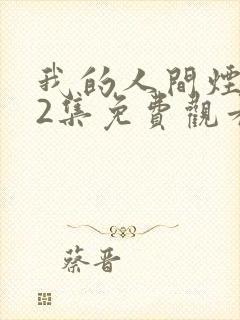 我的人間煙
2集免費觀
蔡晋